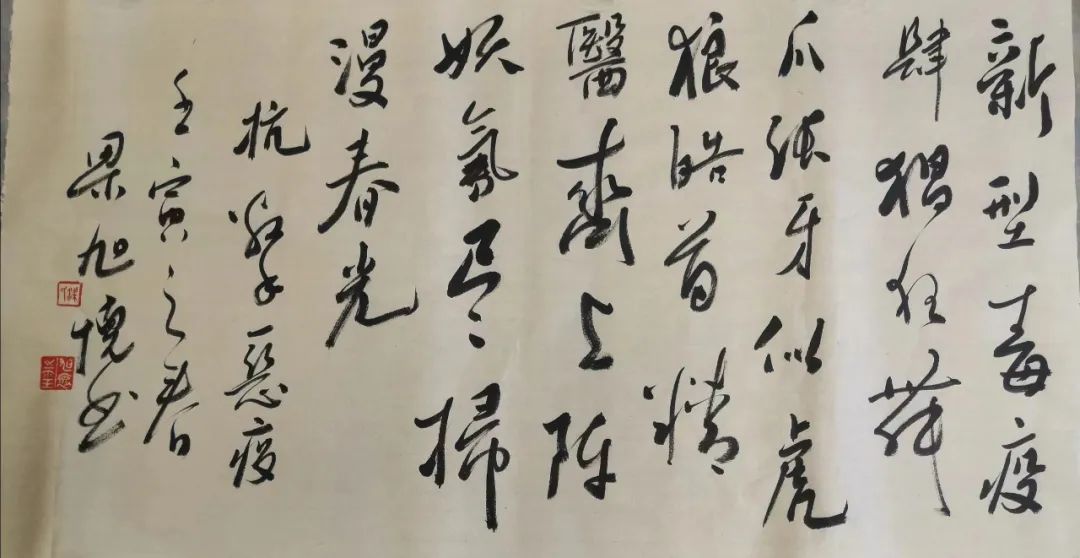 新型毒疫
肆猖狂舞
爪張牙似虎
狼皓首精
醫齊上陣
妖氛尽掃
漫春光
抗擊惡疫
壬寅之春
梁旭书